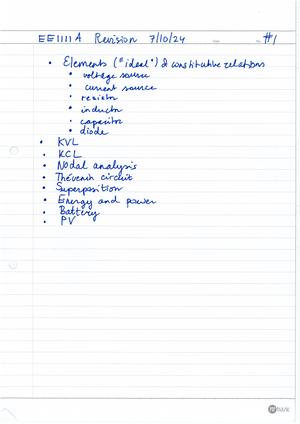 EE1111A Revision 7/10/24
Date
No.
#1
• Elements ("ideal") & constitutive relations
• voltage source
• current source
• resistor
• inductor
• capacitor
• diode
• KVL
• KCL
• Nodal analysis
• Thévenin circuit
• Superposition
• Energy and power
• Battery
• PV